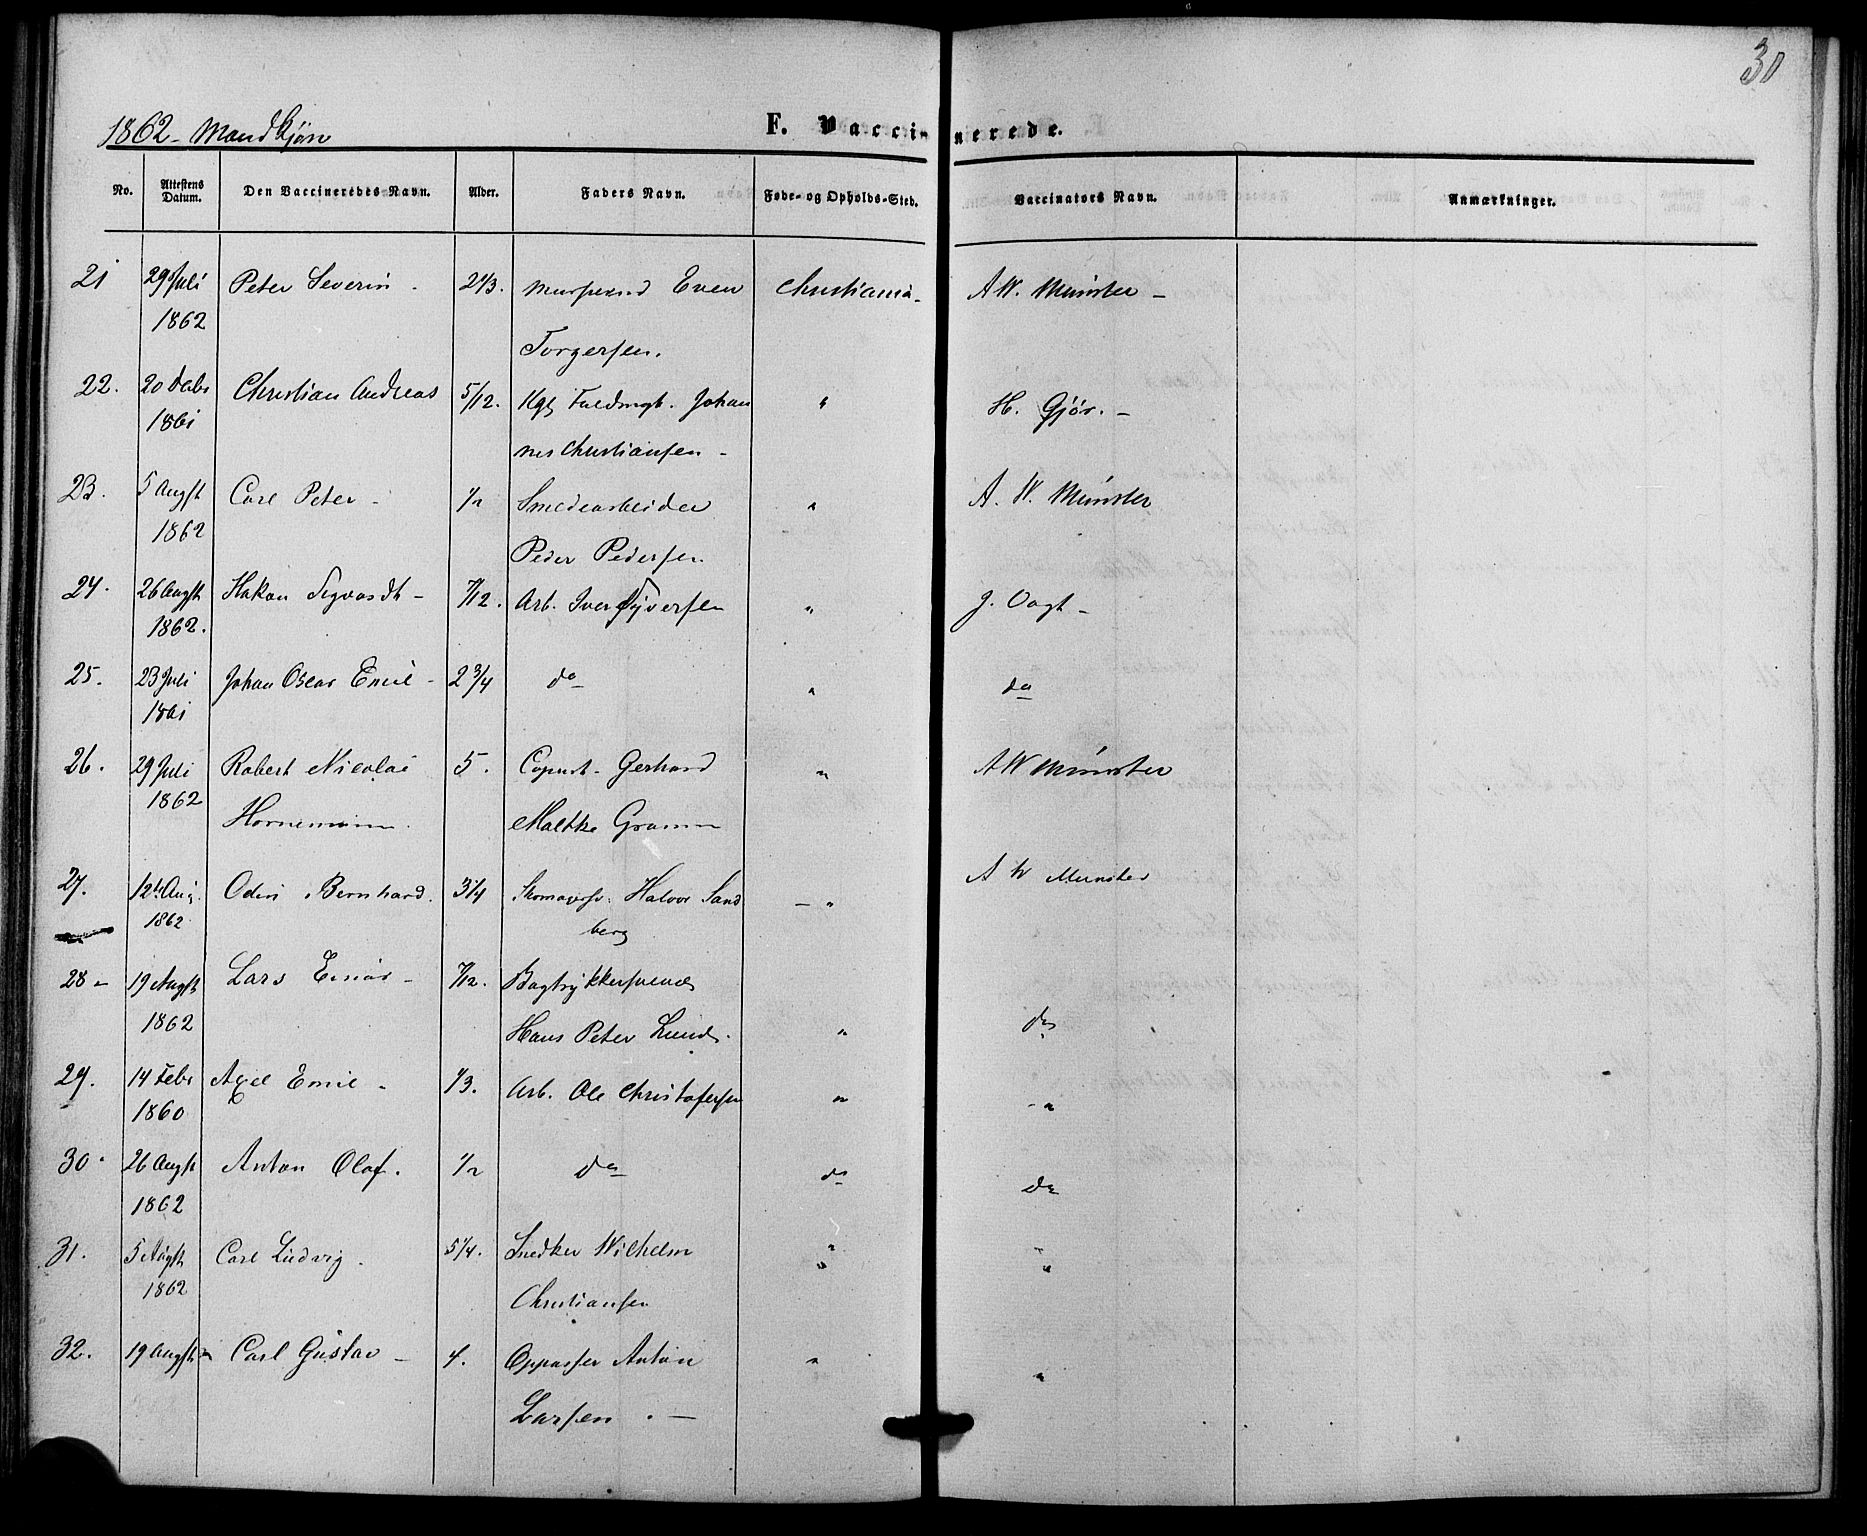 30
1862 - Mandkjøn
F. Vaccinerede.
No. Attestens Datum. Den Vaccineredes Navn. Alder. Faders Navn. Føde- og Opholds-Sted. Vaccinators Navn. Anmærkninger.
21 29 Juli Peter Severin - 2 1/3. Even Christiania - A W. Münster -
1862 Torgersen.
22. 20 Decbr Christian Andreas 5/12. Kgl Fuldmgt. Johan " H. Gjör. -
1861 nes Christiansen -
23. 5 Augst Carl Peter - 1/2 Smedearbeider " A. W. Münster
1862 Peder Pedersen
24. 26 Augst Hakon Sigvardt - 7/12. Arb. Iver Syversen " J. Vogt -
1862.
25. 23 Juli Johan Oscar Emil - 2 3/4 do " do
1861
26. 29 Juli Robert Nicolai 5. Copiist. Gerhard " A W Münster
1862 Hornemann. Moltke Gramm
27. 12te Aug. Odin Bernhard. 3 1/4 Halvor Sand — " A W Munster
1862 berg
28 - 19 Augst Lars Einar - 7/12. Bogtrykkersvend
1862 Hans Peter Lund. " do
29. 14 Febr Axel Emil - 1/3. Arb. Ole Christofersen " - "
1860
30. 26 Augst Anton Olaf. 1/2 do do do
1862
31. 5 Augst Carl Ludvig. 5 1/4. Snedker Wilhelm " "
1862 Christiansen
32. 19 Augst " Carl Gustav - 4. Oppasser Anton " "
Larsen. —